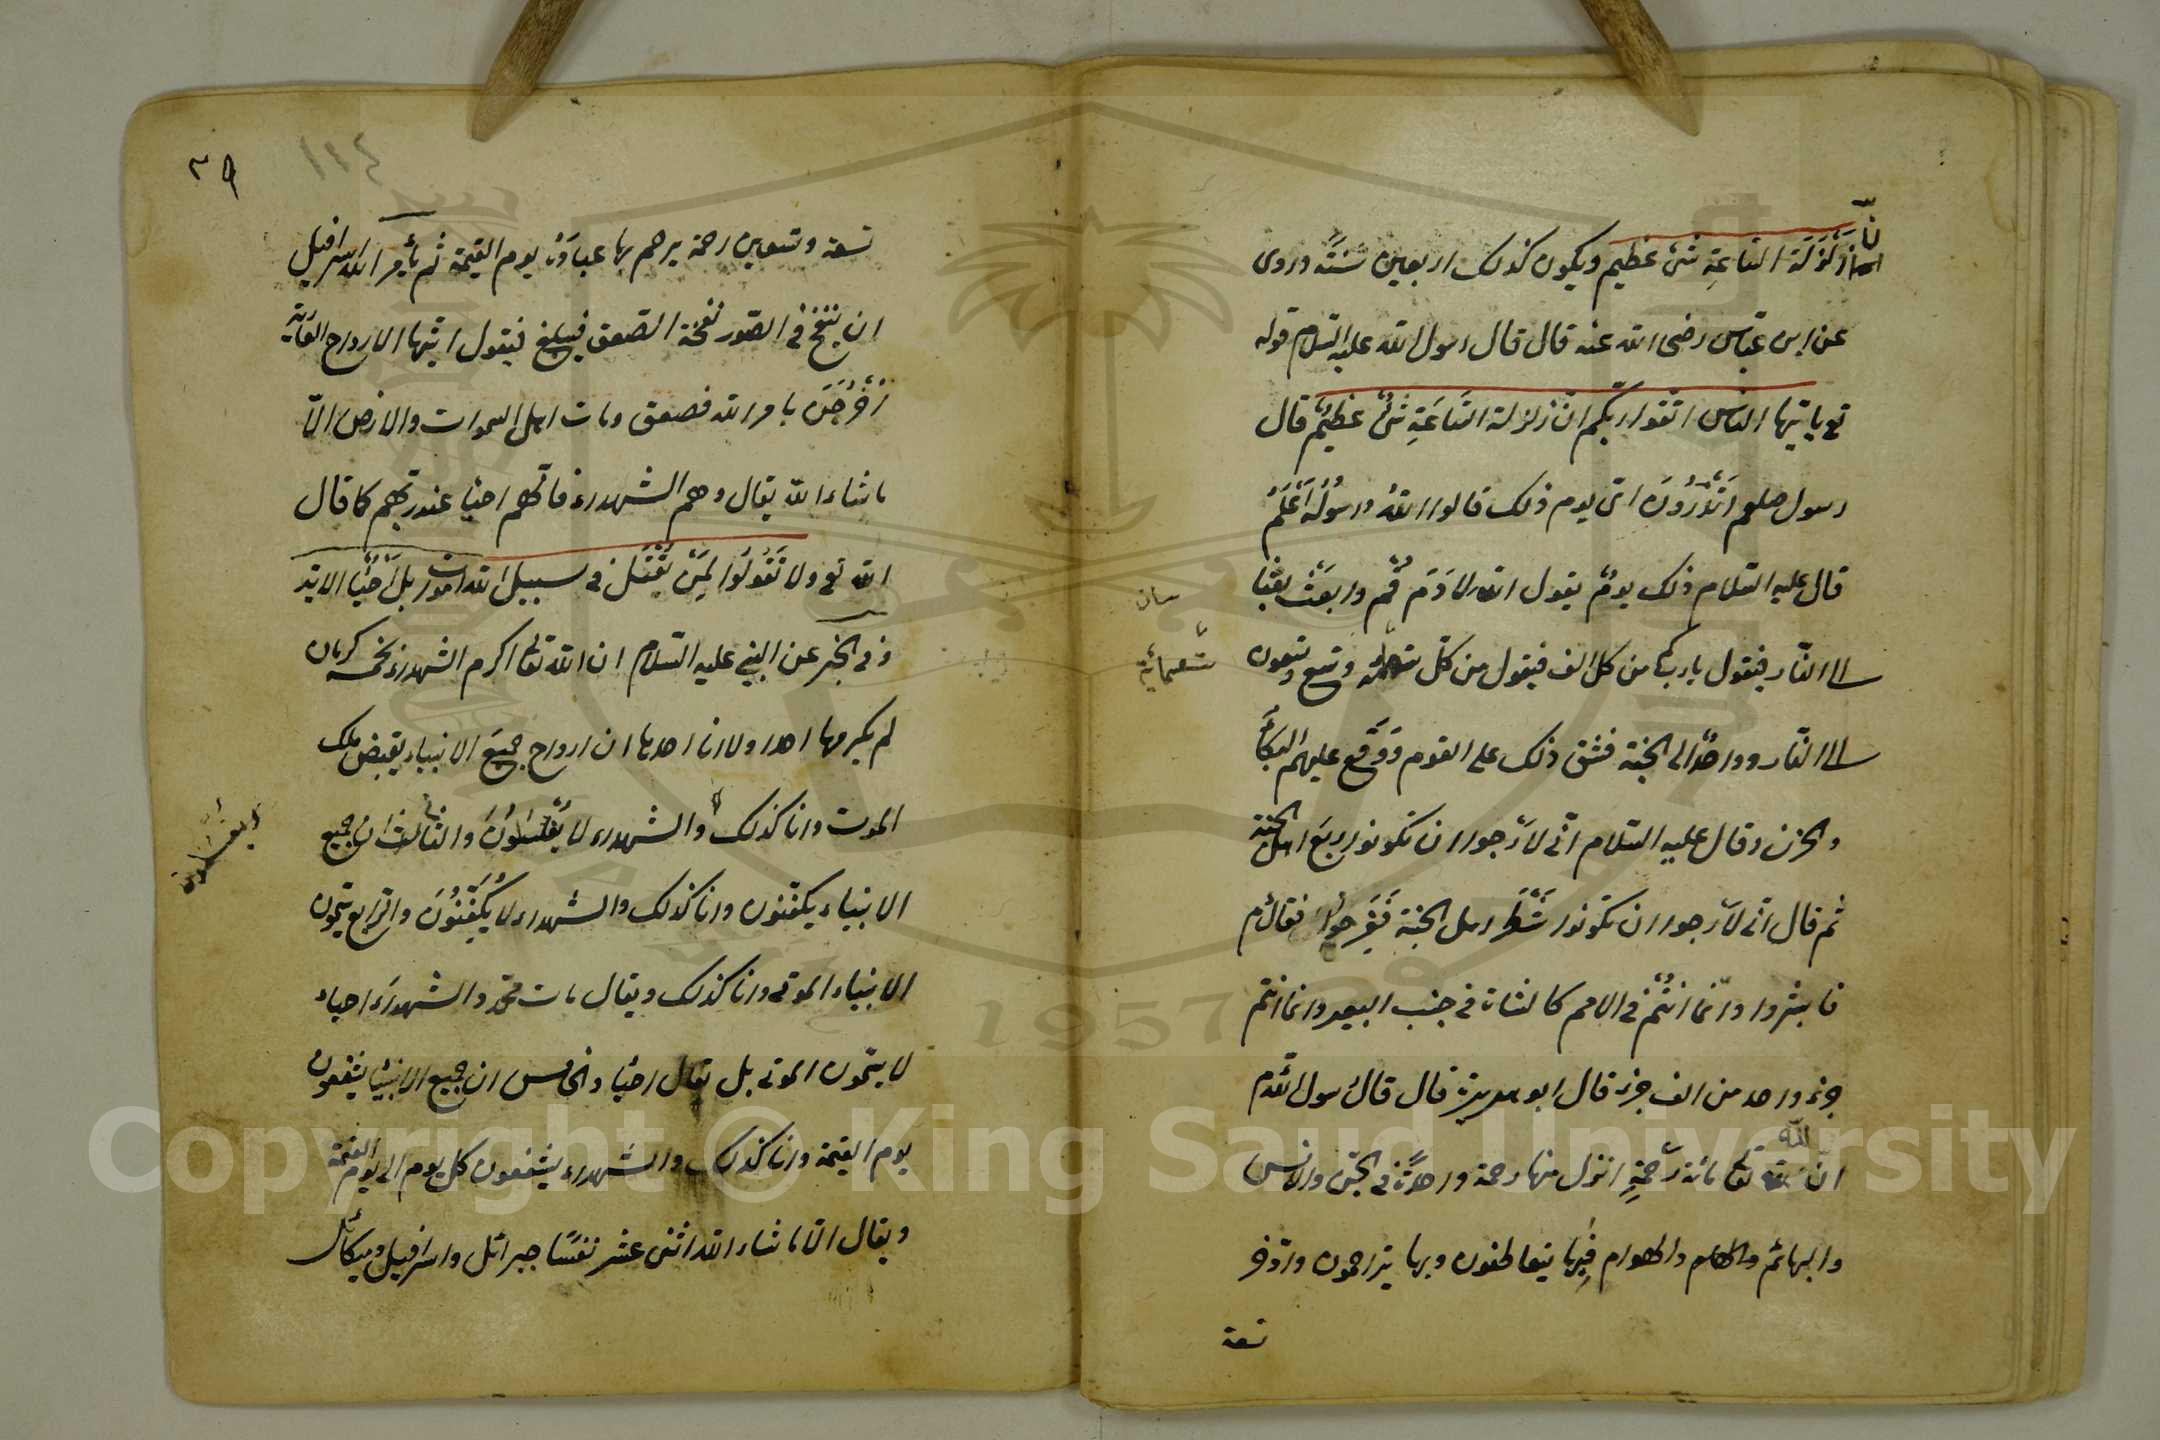 انّ زَلْزَلَةَ السّاعَةِ شئ عظيم ويكون كذلك اربعين سَنَةً وروى
عن ابن عبّاس رضى الله عنه قال قال رسول الله عليه السّلام قوله
تع يا ايّها الناس اتّقوا ربّكم انّ زلزلة السّاعَةِ شئٌ عظيمٌ قال
رسول صلعم اَتَدْرُونَ اىّ يوم ذلك قالوا اللهُ ورسولُهُ اَعْلَمُ
قال عليه السّلام ذلك يومٌ يقول الله لادَمَ قُمْ وابعَثْ بعْثًا
الى النّار فيقول يا ربّ كم من كل الف فيقول من كلّ وتسع وتسعون
تسعمائة
الى النّار وواحدًا الى الجنّة فشقّ ذلك على القوم ووَقَع عليهم البُكَاءُ
والحزن وقال عليه السّلام انّى لاَرجوا ان تكونوا ربعَ اهل الجنّة
ثم قال انّى لاَرجوا ان تكونوا شَطْرَ اهل الجنّة فَفَرِحُوا فقال م
فابشروا وانّما انْتُمْ فى الامم كالشاة فى جنب البعير وانما انتم
جزء واحد من الف جزء قال ابو هريرة قال قال رسول الله م
انّ لله تعالى مائة رَحْمَةٍ انزل منها رحمة واحدةً فى الجنّ والانس
والبهائم والهوام فبِها يتعاطفون وبها يتراحمون واَخّر
تسعة
٣٩
١١٤
تسعة وتسعين رحمة يرحم بها عبادَهُ يوم القيمة ثم يأمر الله اسرافيل
ان ينفخ فى الصّور نفخة الصّعق فيقول ايّتها الارواح العَارِية
اُخْرُجْنَ بامر الله فصعق ومات اهل السموات والارض الاّ
ما شاء الله يقال وهم الشهداء فانّهم احيا عند ربّهم كما قال
الله تع ولا تَقُولُوا لِمَنْ يُقْتَل فى سبيل الله اموات بل اَحْيَاٌ الاية
وفى الخبر عن النبى عليه السّلام ان الله تعالى اكرم الشهداء بخمسه كرمات
لم يكرمها احدا ولا انا احدها ان ارواح جميعَ الانبياء يقبض ملك
الموت وانا كذلك والشهداء لا يُغْسَلُونَ والثالث ان جميع
الانبياء يكفّنون وانا كذلك والشهداء لا يُكَفَّنُونَ والرّابع يسمّون
الانبياء الموتى وانا كذلك ويقال مات محمّد والشهدَاء احياء
لا يسمّون الموتى بل يقال احيَاء والخامس ان جميع الانبيَاء يشفعون
يوم القيمة وانا كذلك والشهداء يشفعون كل يوم الى يوم القيمة
ويقال الاّ ما شاء الله اثنى عشر نفسًا جبرائل واسرافيل وميكائل
Copyright © King Saud University
1957